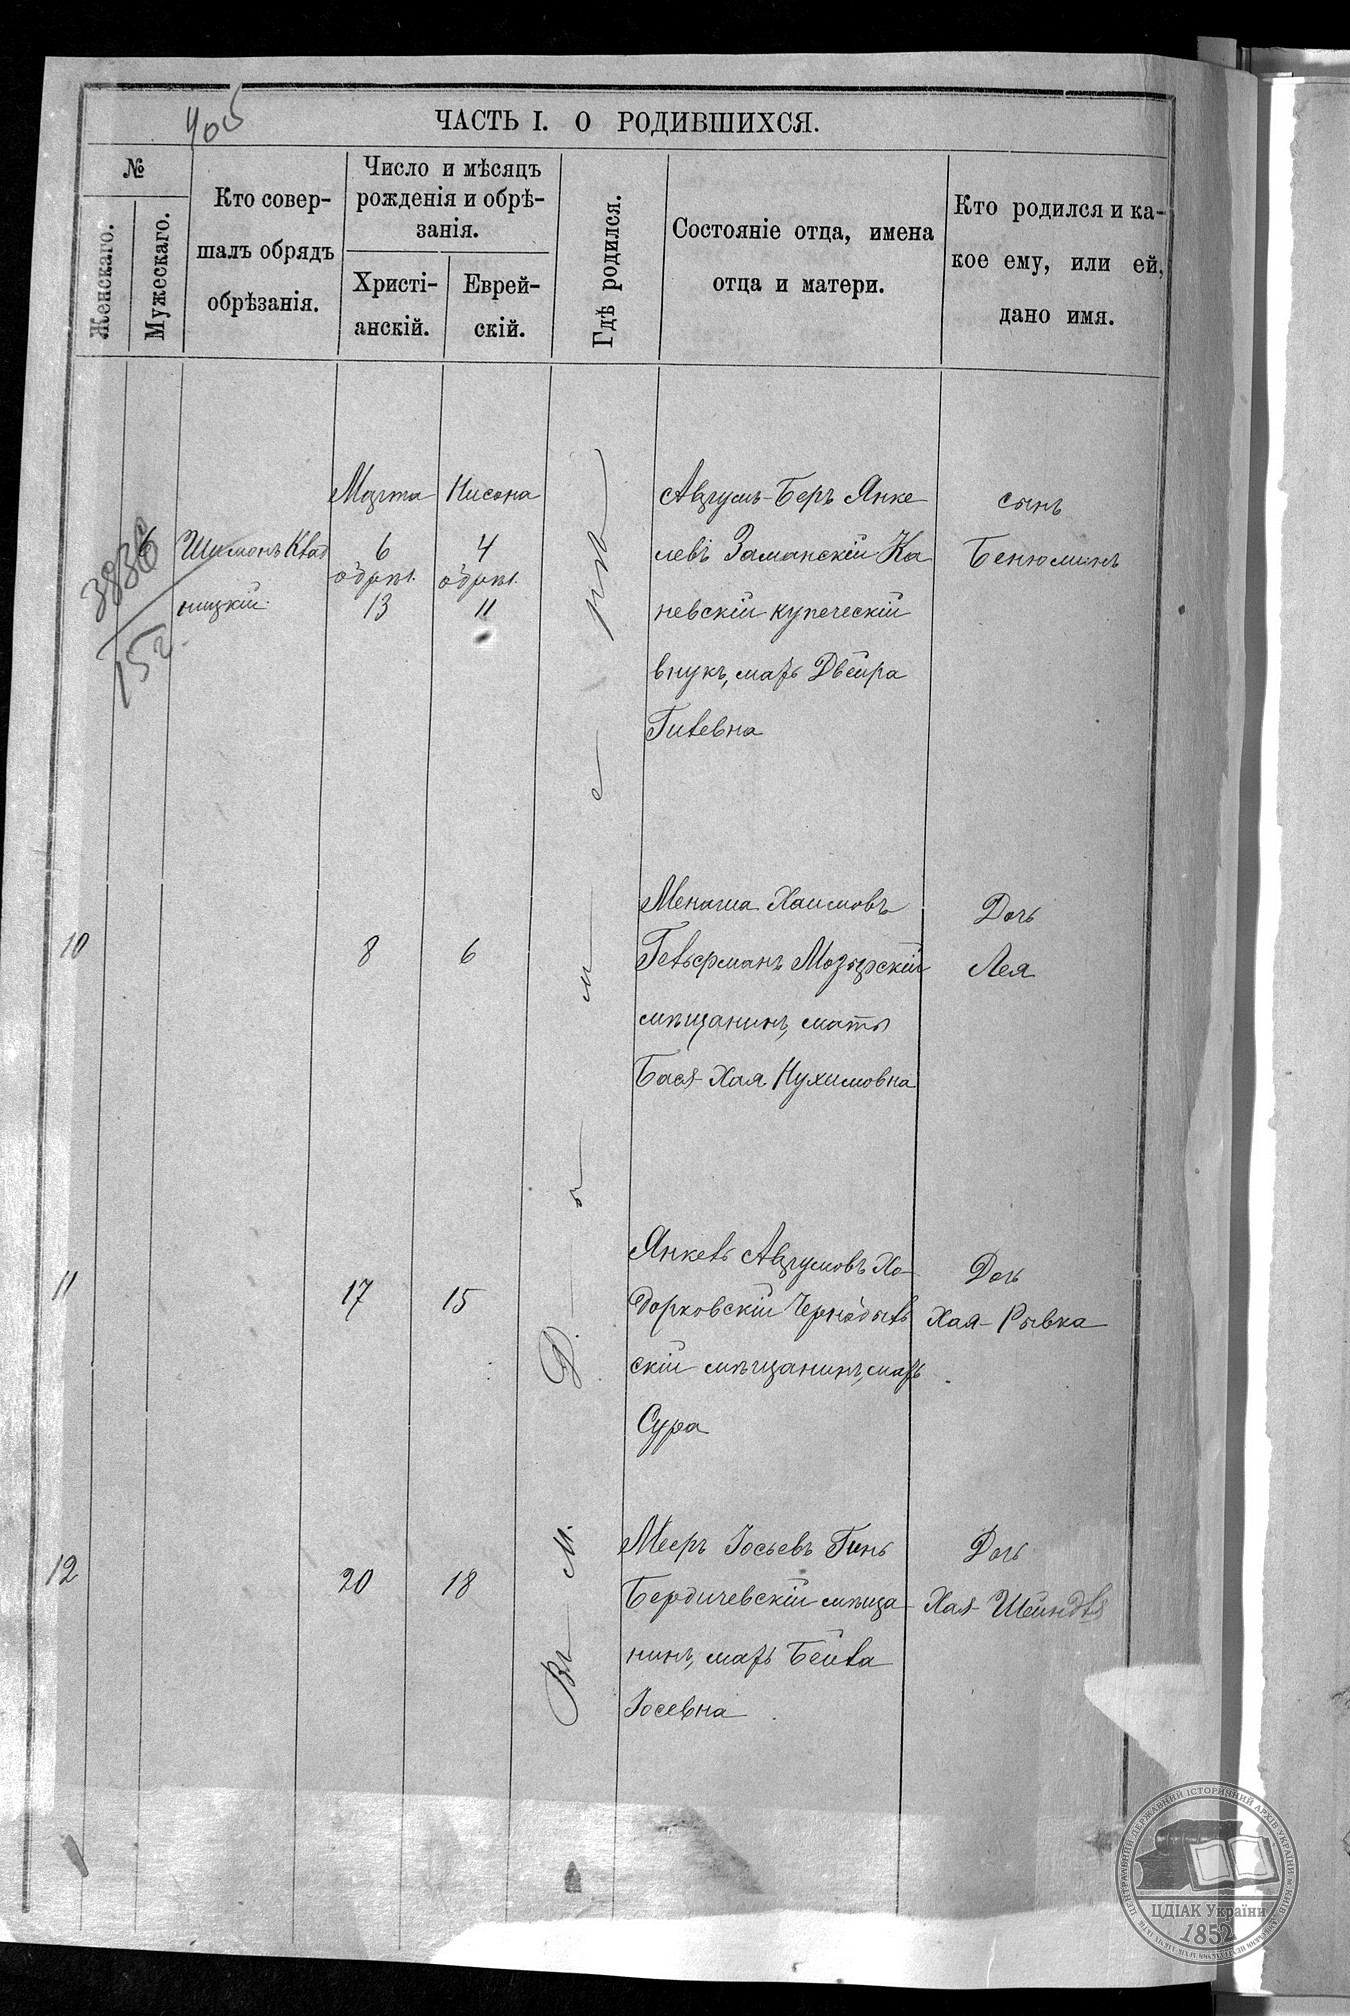 405
ЧАСТЬ I. О РОДИВШИХСЯ.
№
Женскаго.
Мужескаго.
Кто совер-
шалъ обрядъ
обрѣзанія.
Число и мѣсяцъ
рожденія и обрѣ-
занія.
Христі-
анскій.
Еврей-
скій.
Гдѣ родился.
Состояніе отца, имена
отца и матери.
Кто родился и ка-
кое ему, или ей,
дано имя.
Въ м. Дымерѣ
6
Шимонъ Квас
ницкій
Марта
6
обрѣз.
13
Нисона
4
обрѣз.
11
Аврумъ-Беръ Янке
левъ Заманскій Ка
невскій купеческій
внукъ, мать Двейра
Гилевна
сынъ
Бенюминъ
3836
15 г.
10
8
6
Менаша Хаимовъ
Гельфманъ Мозырскій
мѣщанинъ, мать
Бася-Хая Нухимовна
Дочь
Лея
11
17
15
Янкель Аврумовъ Хо-
дорковскій Чернобыль
скій мѣщанинъ, мать
Сура
Дочь
Хая-Рывка
12
20
18
Мееръ Іосьевъ Гинь
Бердичевскій мѣща
нинъ, мать Бейла
Іосевна
Дочь
Хая-Шейндля
ЦЕНТРАЛЬНИЙ ДЕРЖАВНИЙ ІСТОРИЧНИЙ АРХІВ УКРАЇНИ, М. КИЇВ
ЦДІАК України
1852